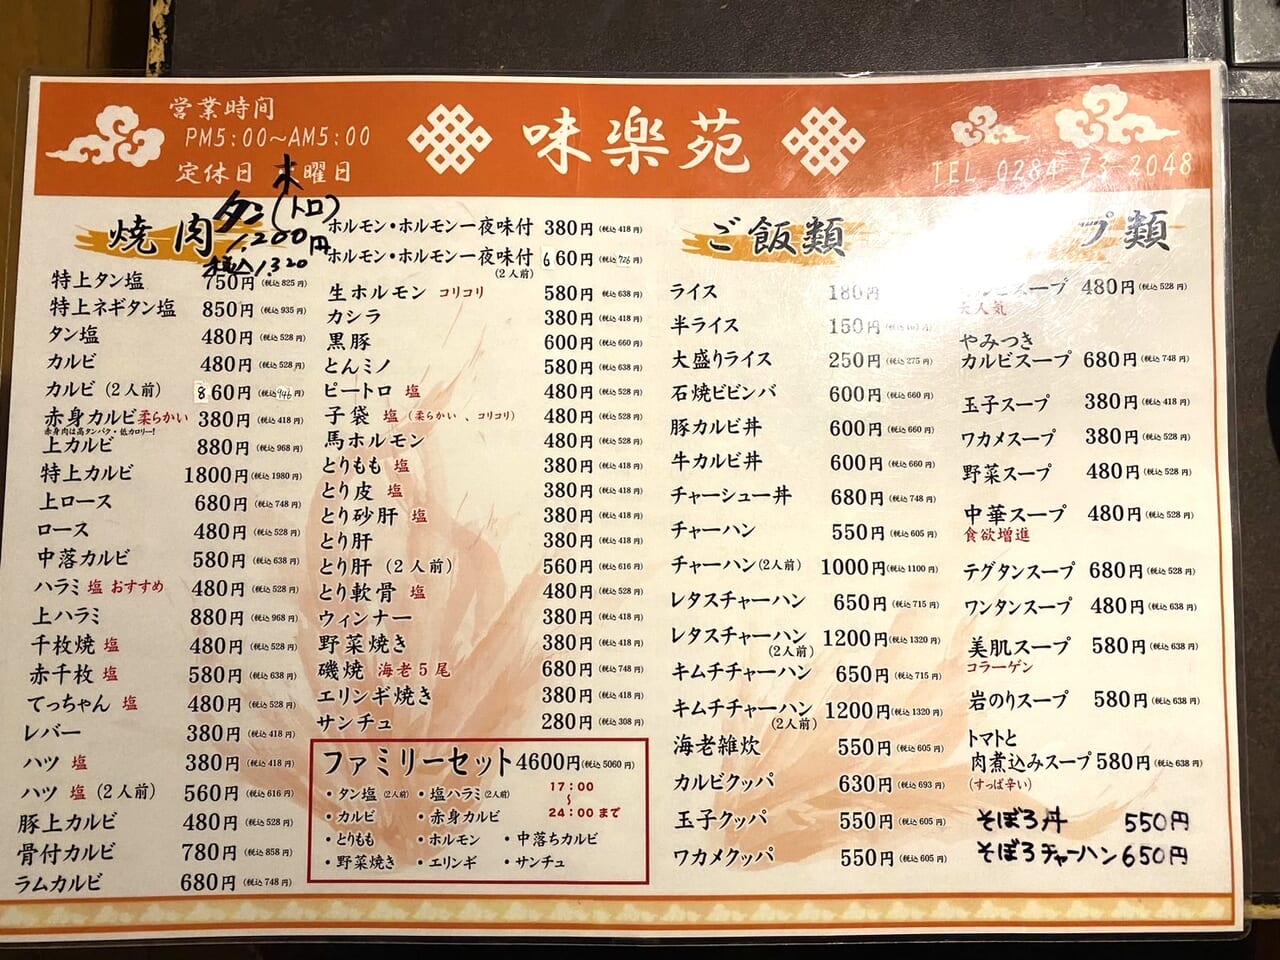 営業時間
PM5:00～AM5:00
定休日 木曜日
味楽苑
TEL 0284 73 2048
焼肉
タン(トロ)
1,200円
税込1320
特上タン塩 750円(税込825円)
特上ネギタン塩 850円(税込935円)
タン塩 480円(税込528円)
カルビ 480円(税込528円)
カルビ(2人前) 860円(税込946円)
赤身カルビ柔らかい 380円(税込418円)
赤身肉は高タンパク・低カロリー!
上カルビ 880円(税込968円)
特上カルビ 1800円(税込1980円)
上ロース 680円(税込748円)
ロース 480円(税込528円)
中落カルビ 580円(税込638円)
ハラミ 塩 おすすめ 480円(税込528円)
上ハラミ 880円(税込968円)
千枚焼 塩 480円(税込528円)
赤千枚 塩 580円(税込638円)
てっちゃん 塩 480円(税込528円)
レバー 380円(税込418円)
ハツ 塩 380円(税込418円)
ハツ 塩(2人前) 560円(税込616円)
豚上カルビ 480円(税込528円)
骨付カルビ 780円(税込858円)
ラムカルビ 680円(税込748円)
ホルモン・ホルモン一夜味付 380円(税込418円)
ホルモン・ホルモン一夜味付 660円(税込726円)
(2人前)
生ホルモン コリコリ 580円(税込638円)
カシラ 380円(税込418円)
黒豚 600円(税込660円)
とんミノ 580円(税込638円)
ピートロ 塩 480円(税込528円)
子袋 塩(柔らかい、コリコリ) 480円(税込528円)
馬ホルモン 480円(税込528円)
とりもも 塩 380円(税込418円)
とり皮 塩 380円(税込418円)
とり砂肝 塩 380円(税込418円)
とり肝 380円(税込418円)
とり肝(2人前) 560円(税込616円)
とり軟骨 塩 480円(税込528円)
ウィンナー 380円(税込418円)
野菜焼き 380円(税込418円)
磯焼 海老5尾 680円(税込748円)
エリンギ焼き 380円(税込418円)
サンチュ 280円(税込308円)
ファミリーセット4600円(税込5060円)
・タン塩(2人前) ・塩ハラミ(2人前)
・カルビ ・赤身カルビ
・とりもも ・ホルモン ・中落ちカルビ
・野菜焼き ・エリンギ ・サンチュ
17:00
～
24:00まで
ご飯類
ライス 180円
半ライス 150円
大盛りライス 250円(税込275円)
石焼ビビンバ 600円(税込660円)
豚カルビ丼 600円(税込660円)
牛カルビ丼 600円(税込660円)
チャーシュー丼 680円(税込748円)
チャーハン 550円(税込605円)
チャーハン(2人前) 1000円(税込1100円)
レタスチャーハン 650円(税込715円)
レタスチャーハン 1200円(税込1320円)
(2人前)
キムチチャーハン 650円(税込715円)
キムチチャーハン 1200円(税込1320円)
(2人前)
海老雑炊 550円(税込605円)
カルビクッパ 630円(税込693円)
玉子クッパ 550円(税込605円)
ワカメクッパ 550円(税込605円)
プ類
スープ 480円(税込528円)
大人気
やみつき
カルビスープ 680円(税込748円)
玉子スープ 380円(税込418円)
ワカメスープ 380円(税込528円)
野菜スープ 480円(税込528円)
中華スープ 480円(税込528円)
食欲増進
テグタンスープ 680円(税込528円)
ワンタンスープ 480円(税込638円)
美肌スープ 580円(税込638円)
コラーゲン
岩のりスープ 580円(税込638円)
トマトと
肉煮込みスープ580円(税込638円)
(すっぱ辛い)
そぼろ丼 550円
そぼろチャーハン650円